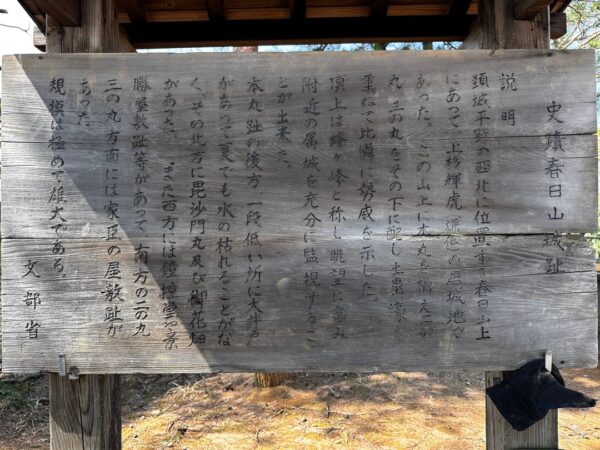 史蹟春日山城趾
説明
頸城平野の西北に位置する春日山上
にあって上杉輝虎 謙信の居城地で
あった。この山上に本丸を構え二の
丸、三の丸をその下に配し土塁、濠、
重ねて比隣に勢威を示した。
頂上は蜂ヶ峰と称し眺望に富み
附近の属城を充分に監視するこ
とが出来た。
本丸趾の後方一段低い所に大井戸
があって夏でも水の枯れることがな
く、その北方に毘沙門丸及び御花畑
があった。また西方には鐘撞堂や景
勝屋敷趾等があって南方の二の丸
三の丸方面には家臣の屋敷趾が
あった。
規模は極めて雄大である。
文部省